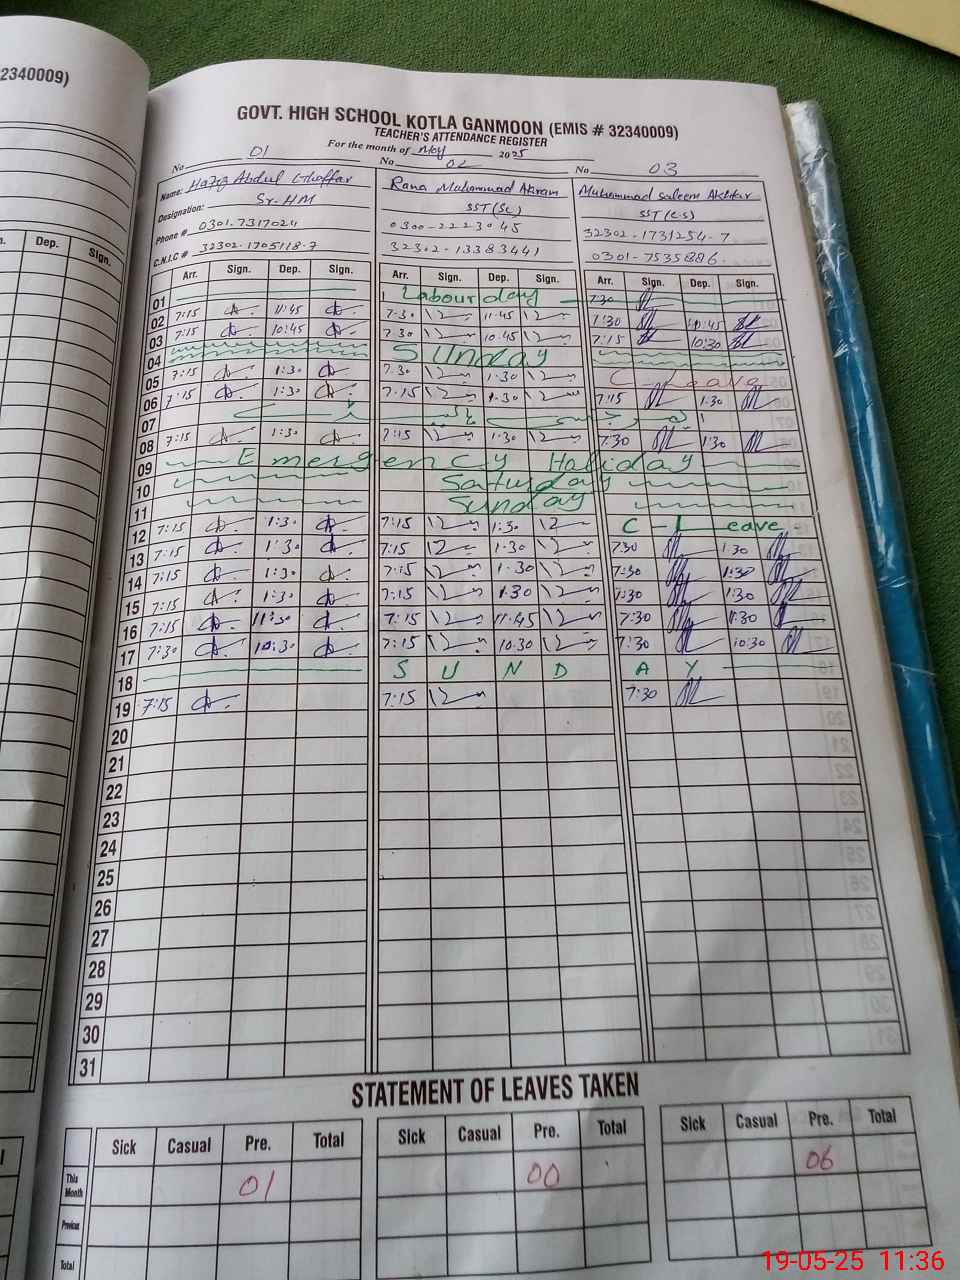 32340009)
GOVT. HIGH SCHOOL KOTLA GANMOON (EMIS # 32340009)
TEACHER'S ATTENDANCE REGISTER
For the month of May 2025
No 01 No 02 No 03
Name: Hafiz Abdul Ghaffar Rana Muhammad Akram Muhammad Saleem Akhtar
Designation: Sr. HM SST (Sc) SST (C.S)
Phone # 0301-7317024 0300-2223045 32302-1731254-7
C.N.I.C # 32302-1705118-7 32302-13383441 0301-7535886
Dep. Sign.
Arr. Sign. Dep. Sign. Arr. Sign. Dep. Sign. Arr. Sign. Dep. Sign.
01 Labour day 7:30
02 7:15 11:45 7:30 11:45 7:30 11:45
03 7:15 10:45 7:30 10:45 7:15 10:30
04 Sunday
05 7:15 1:30 7:30 1:30 C-Leave
06 7:15 1:30 7:15 1:30 7:15 1:30
07
08 7:15 1:30 7:15 1:30 7:30 1:30
09 Emergency Holiday
10 Saturday
11 Sunday
12 7:15 1:30 7:15 1:30 C-Leave
13 7:15 1:30 7:15 1:30 7:30 1:30
14 7:15 1:30 7:15 1:30 7:30 1:30
15 7:15 1:30 7:15 1:30 7:30 1:30
16 7:15 11:30 7:15 11:45 7:30 11:30
17 7:30 10:30 7:15 10:30 7:30 10:30
18 S U N D A Y
19 7:15 7:15 7:30
20
21
22
23
24
25
26
27
28
29
30
31
STATEMENT OF LEAVES TAKEN
Sick Casual Pre. Total Sick Casual Pre. Total Sick Casual Pre. Total
This Month 01 00 06
Previous
Total
19-05-25 11:36